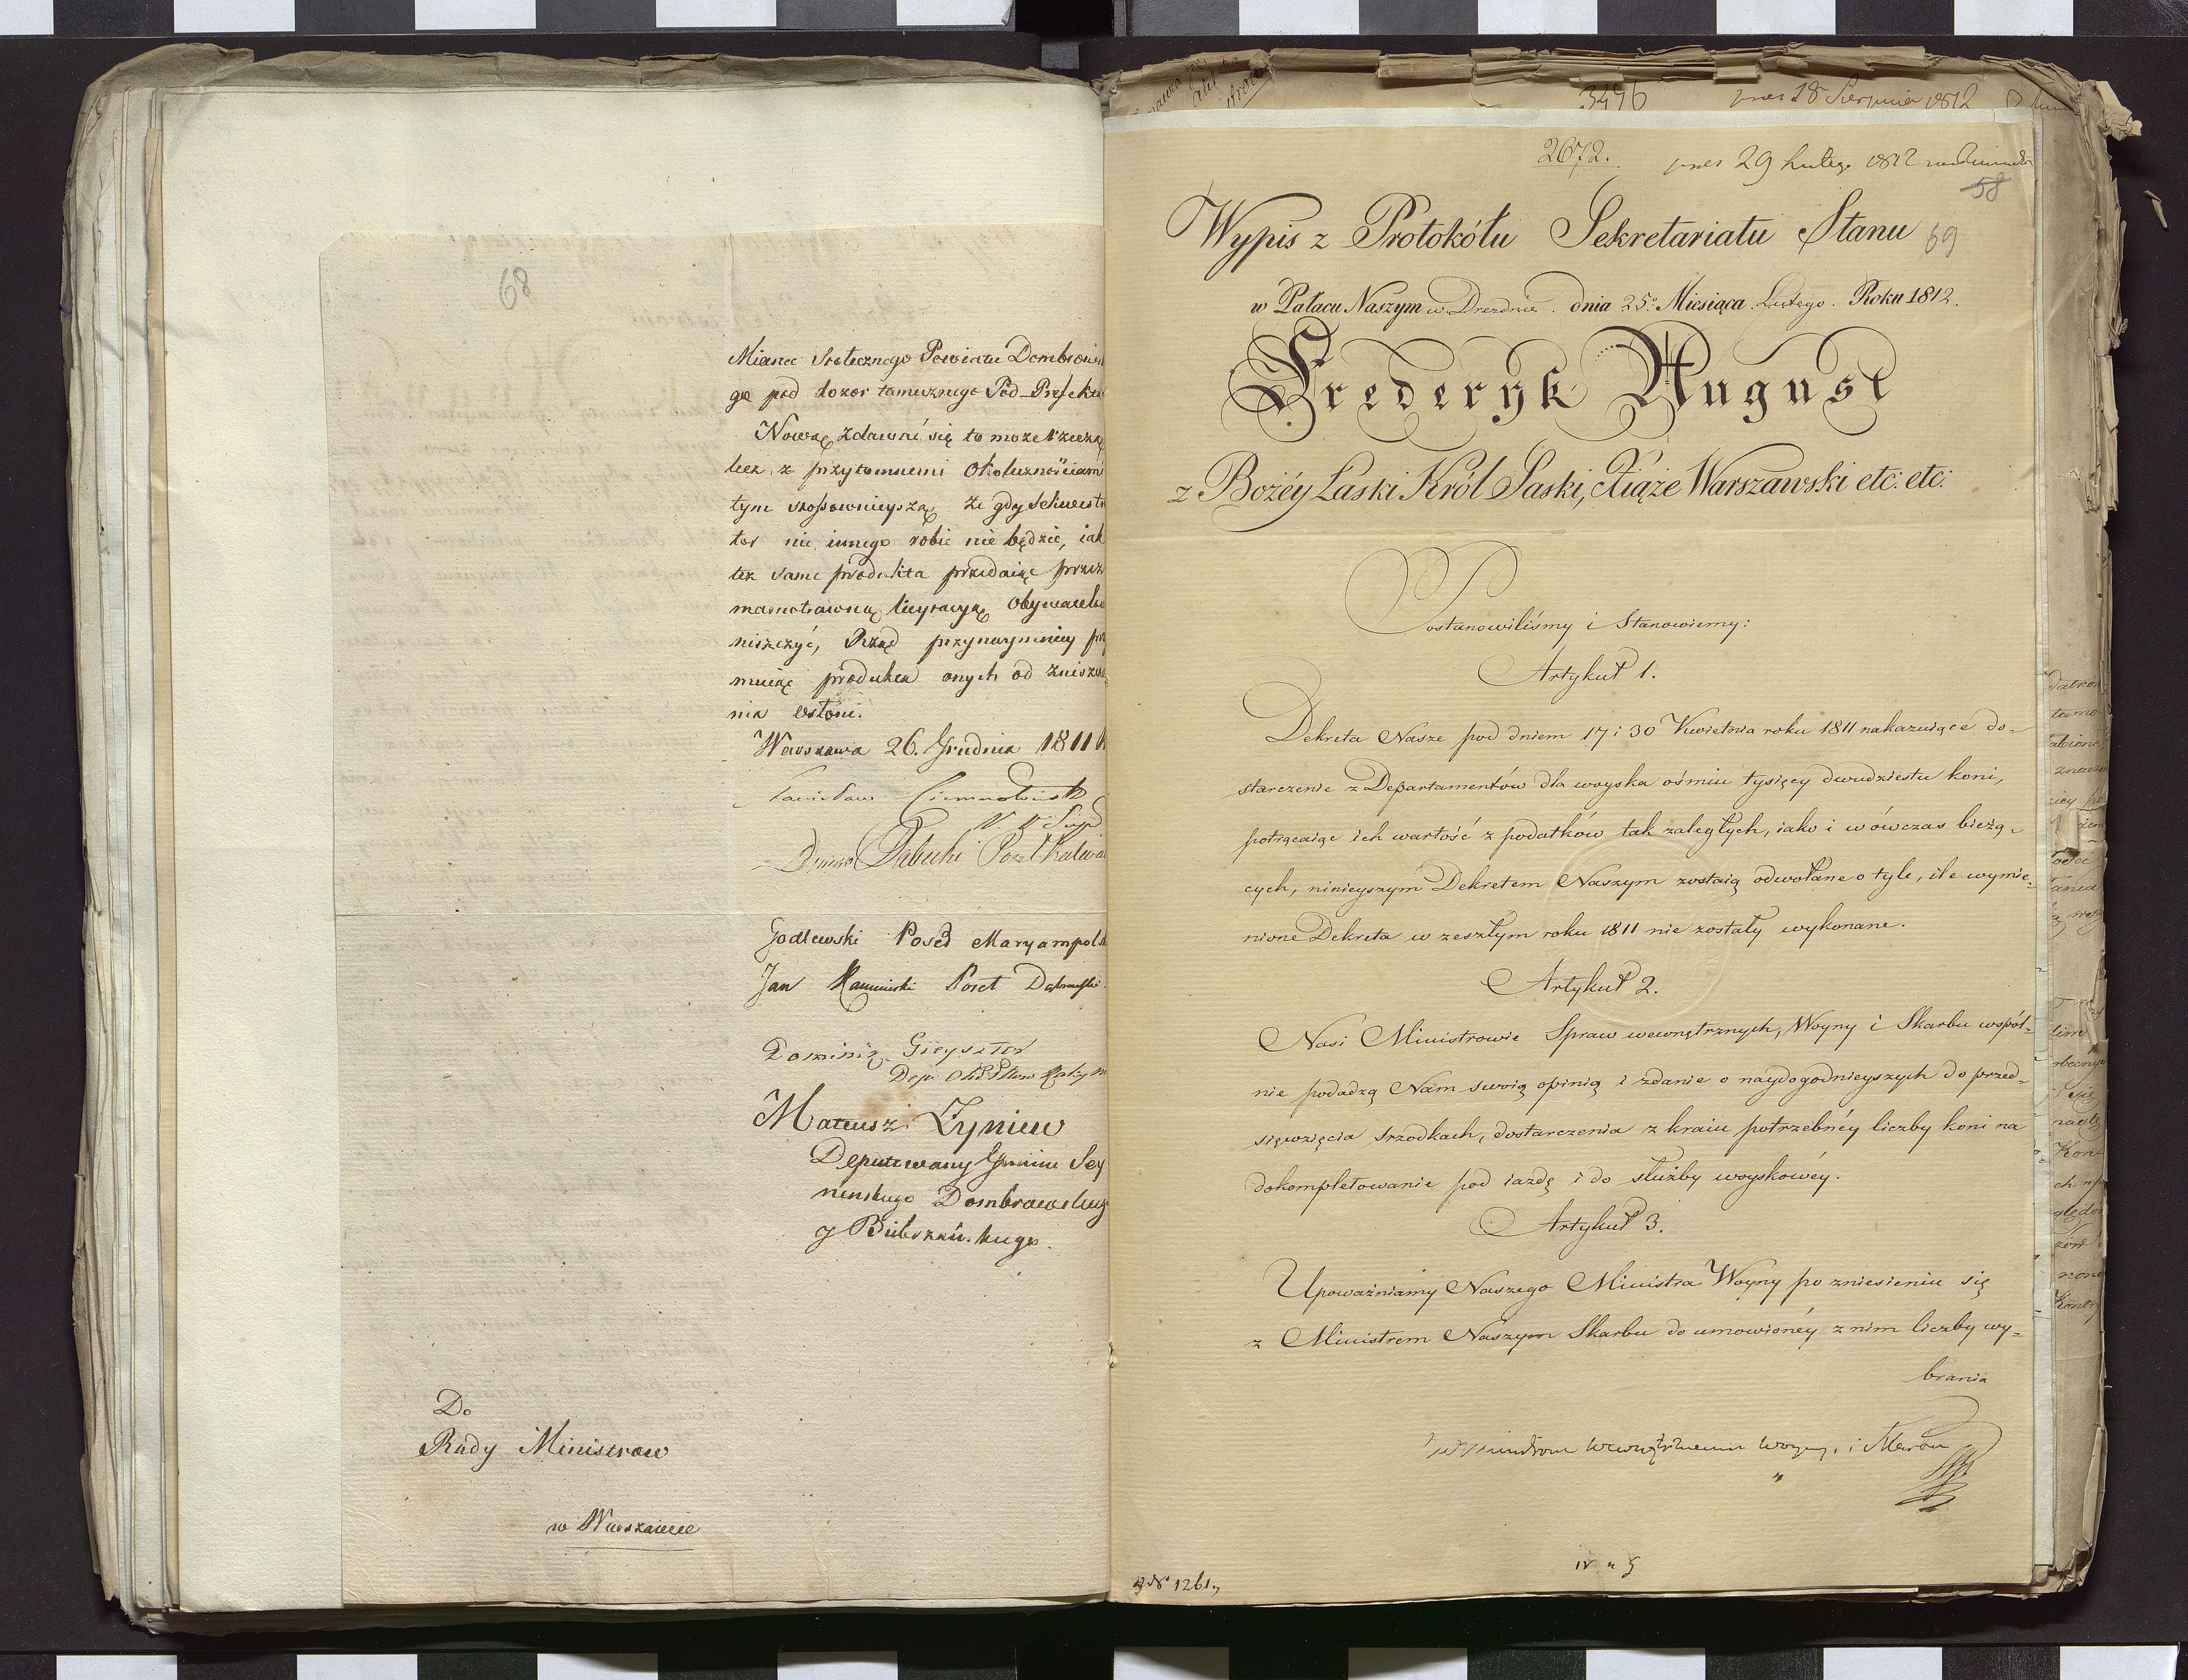 68
Miasta Stołecznego Powiatu Dombrows
go pod dozor tamecznego Pod-Prefekta
Nową zdawać się to może rzeczą
lecz z przytomnemi okolicznościami
tym stosownieyszą, że gdy Sekwestra
tor nic innego robić nie będzie, iak
też same produkta przedaiąc przez
marnotrawną licytacyą Obywatelow
niszczyć, Rząd przynaymniey
muiąc produkta onych od zniszcze
nia osłoni.
Warszawa 26. Grudnia 1811
Godlewski Poseł Maryampols
Jan Kamiński Poseł Dąbrowski
Dominik Gieysztor
Mateusz Zyniew
Deputowany Gminu Sey
nenskiego Dombrowskieg
y Biebrzań.kiego.
Do
Rady Ministrow
w Warszawie
3496 18 Sierpnia 1812
2672. 29 Lutego 1812
58
69
Wypis z Protokółu Sekretariatu Stanu
w Pałacu Naszym w Dreznie. dnia 25º Miesiąca Lutego. Roku 1812.
Frederyk August
z Bożéy Łaski Król Saski, Xiąże Warszawski etc: etc:
Postanowiliśmy i Stanowiemy:
Artykuł 1.
Dekreta Nasze pod dniem 17 i 30 Kwietnia roku 1811 nakazuiące do-
starczenie z Departamentów dla woyska ośmiu tysięcy dwudziestu koni,
potrącaiąc ich wartość z podatków tak zaległych, iako i wówczas bieżą-
cych, ninieyszym Dekretem Naszym zostaią odwołane o tyle, ile wymie-
nione Dekreta w zeszłym roku 1811 nie zostały wykonane.
Artykuł 2.
Nasi Ministrowie Spraw wewnętrznych, Woyny i Skarbu wspól-
nie podadzą Nam swoią opinią i zdanie o naydogodnieyszych do przed-
sięwzięcia srzodkach, dostarczenia z kraiu potrzebnéy liczby koni na
dokompletowanie pod iazdę i do służby woyskowéy.
Artykuł 3.
Upoważniamy Naszego Ministra Woyny po zniesieniu się
z Ministrem Naszym Skarbu do umowionéy z nim liczby wy-
brania
1261